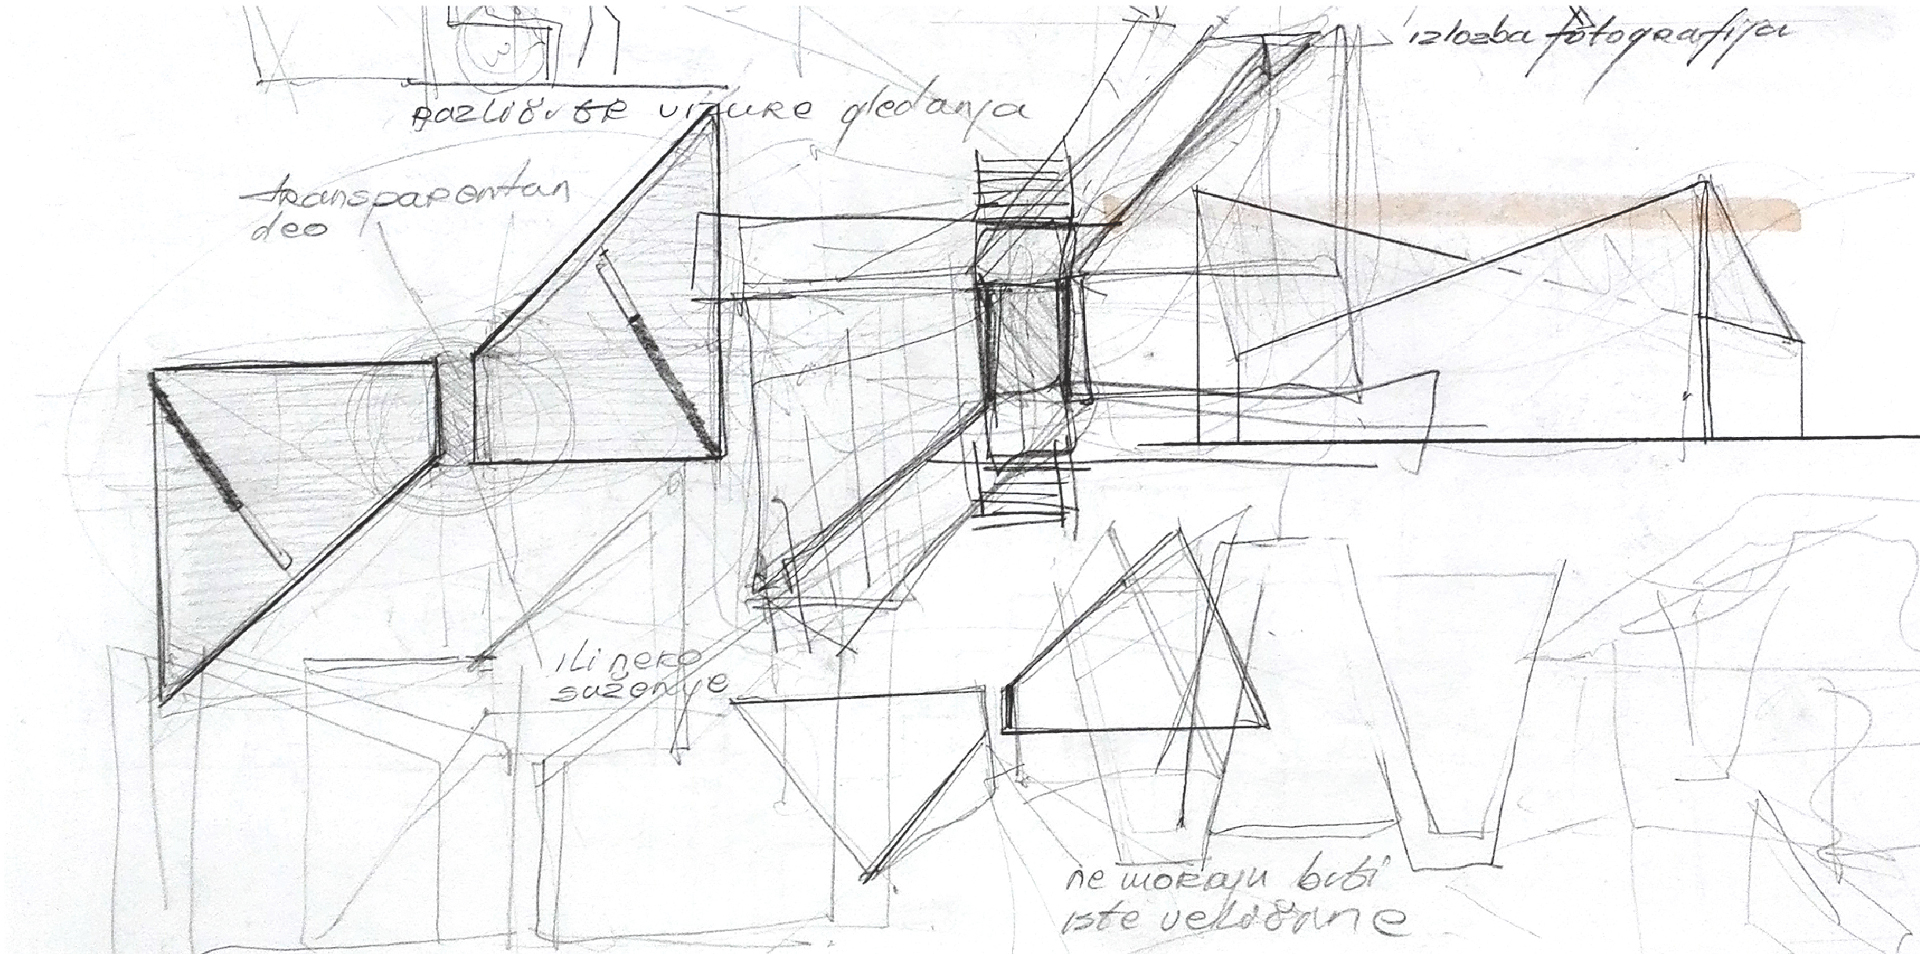 izlozba fotografija
različite vizure gledanja
transparentan
deo
ili neko
suženje
ne moraju biti
iste veličine